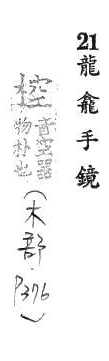 21龍龕手鏡
椌音空器
物朴也
(木部·P376)